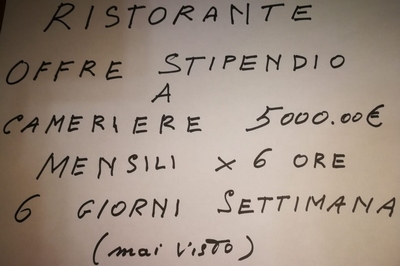 RISTORANTE
OFFRE STIPENDIO
A
CAMERIERE 5000.00€
MENSILI x 6 ORE
6 GIORNI SETTIMANA
(mai visto)